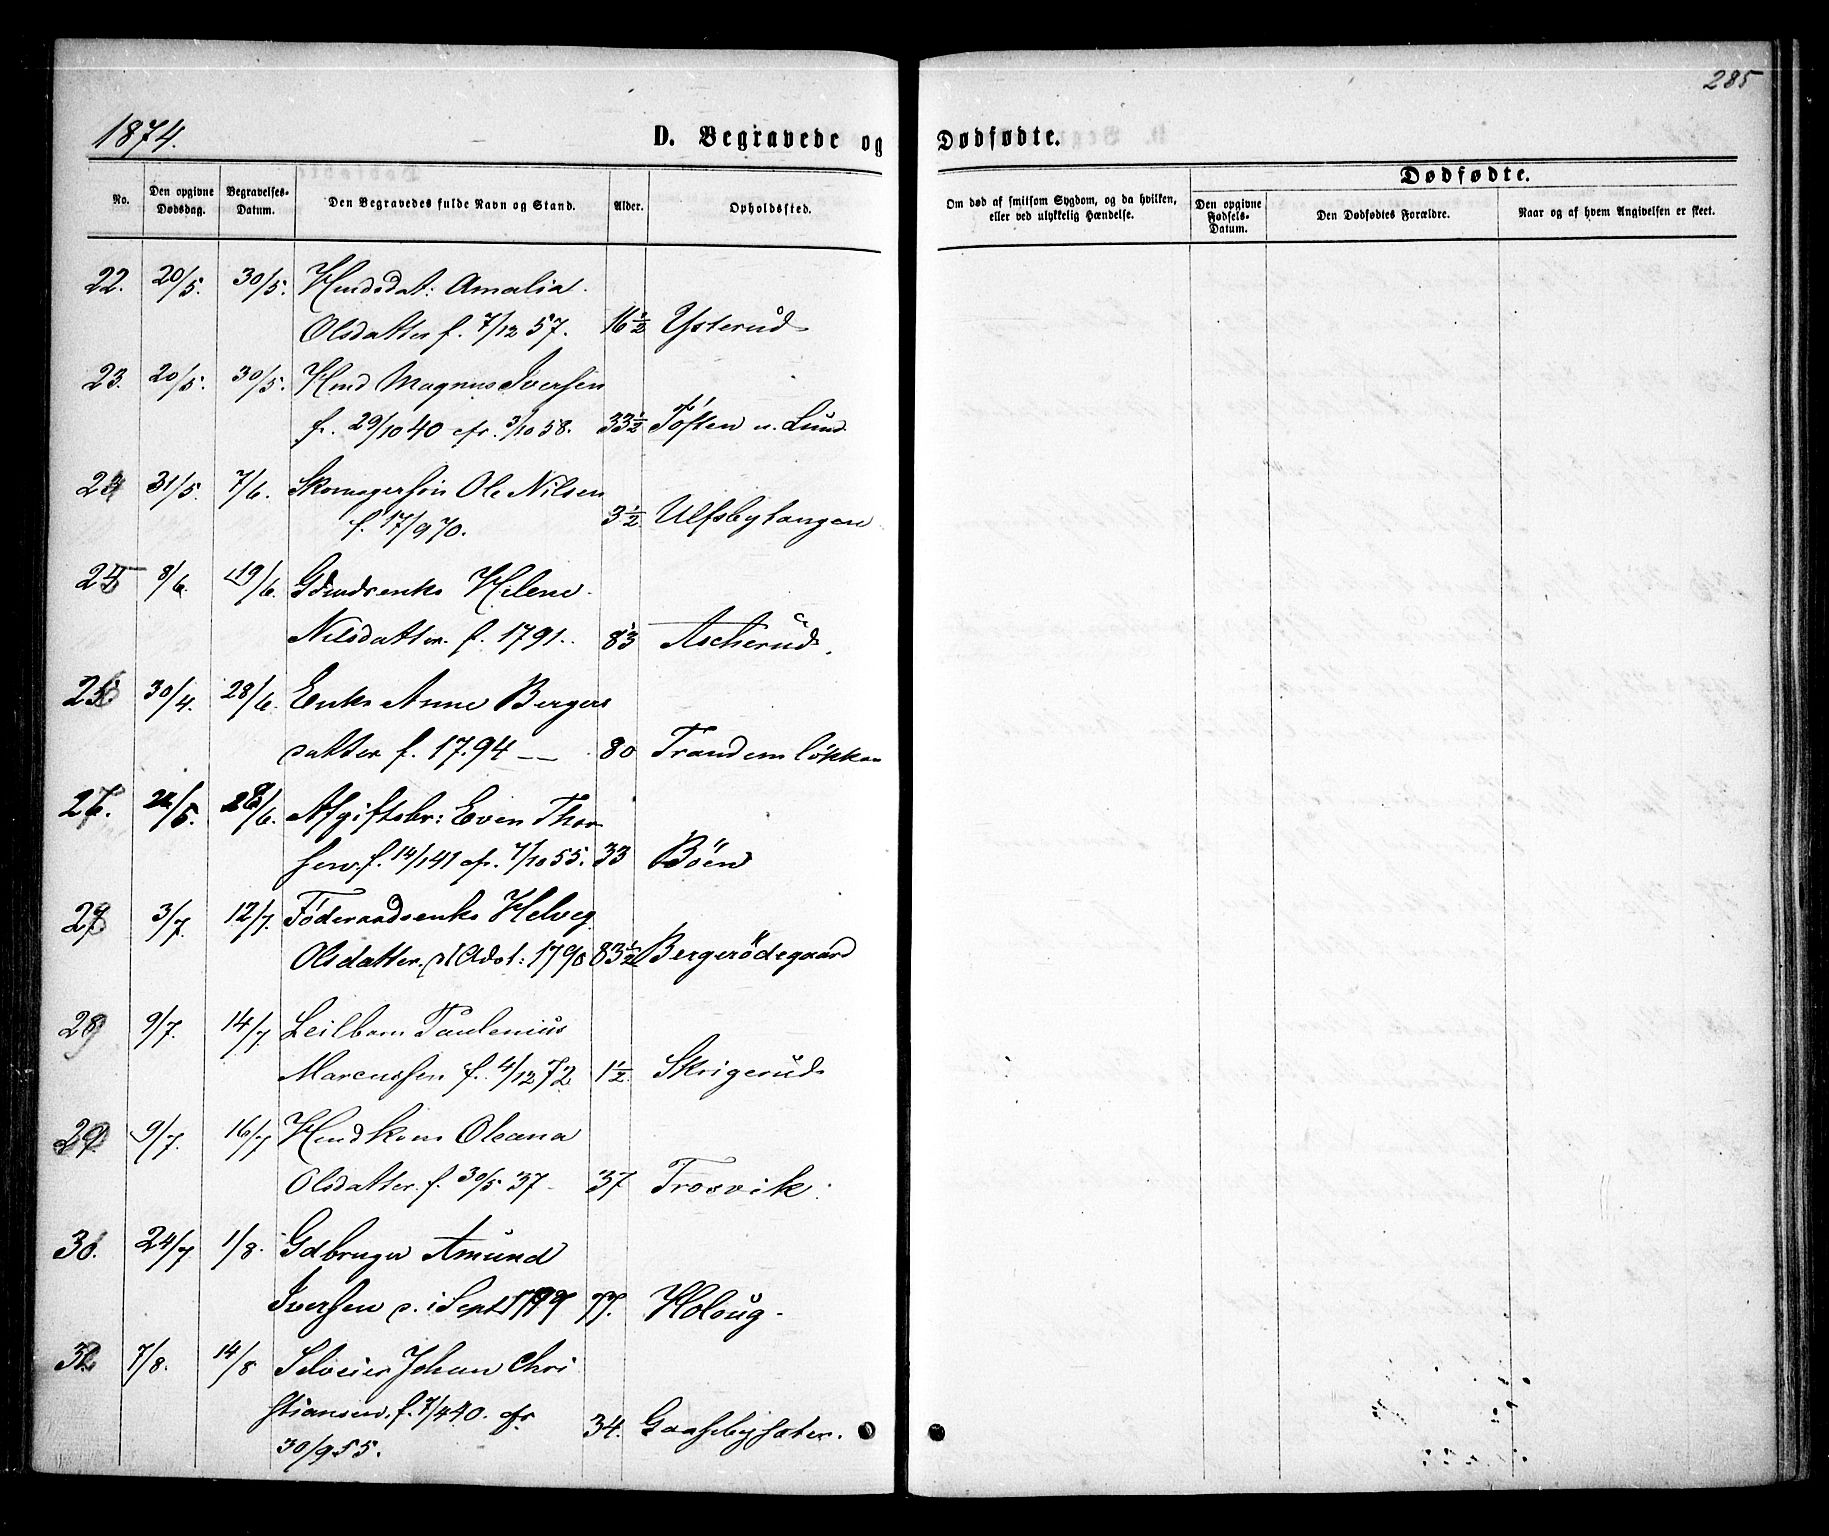 285
1874.
D. Begravede og Dødfødte.
No.
Den opgivne Dødsdag.
Begravelses-Datum.
Den Begravedes fulde Navn og Stand.
Alder.
Opholdssted.
Om død af smitsom Sygdom, og da hvilken, eller ved ulykkelig Hændelse.
Dødfødte.
Den opgivne Fødsels-Datum.
Den Dødfødtes Forældre.
Naar og af hvem Angivelsen er skeet.
22. 20/5. 30/5. Hmdsdat: Amalia
Olsdatter f. 7/12 57. 16 1/2 Ysterud
23. 20/5. 30/5. Hmd Magnus Iversen
f. 29/10 40 cfr. 3/10 58. 33 1/2 Töften u. Lund
24 31/5. 7/6. Skomagersön Ole Nilsen
f. 17/9 70. 3 1/2 Ulfsbytangen
25 8/6 19/6. Helene
Nilsdatter f. 1791. 83 Ascherud.
26 30/4. 28/6. Enke Anne Bergers
datter f. 1794 — 80 Trandemlökka
27. /5. 28/6. Afgiftsbr: Even Thor
sen f. 14/1 41 cfr. 7/10 55. 33 Böen
28 3/7. 12/7. Föderaadsenke Helveg
Olsdatter 1790 83 1/2 Bergerödegaard
29 9/7. 14/7. Leilbarn Paulenius
Marcussen f. 4/12 72 1 1/2. Skrigerud
9/7. 16/7 Hmdkone Oleana
Olsdatter f. 30/5 37 37 Trosvik.
24/7 1/8. Gdbruger Amund
Iversen d. i Sept 77. Holoug.
32 7/8. 14/8 Selveier Johan Chri
stiansen. f. 7/4 40. cfr. 34. Gaasebysæter.
30/9 55.